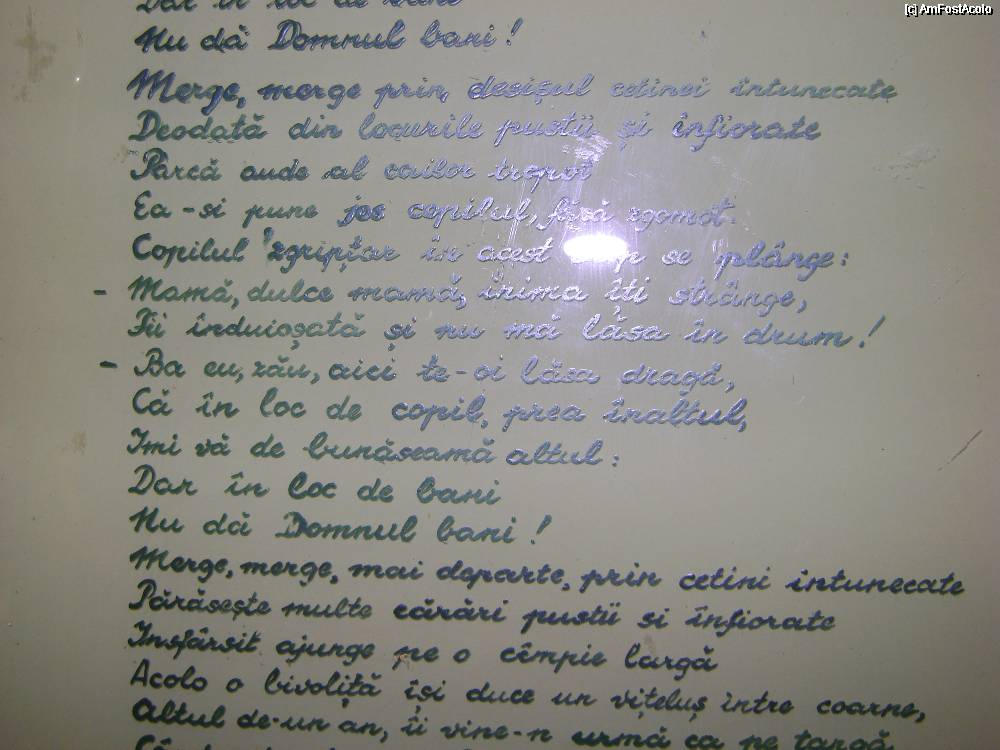 [c] AmFostAcolo
Dar în loc de bani
Nu dă Domnul bani!
Merge, merge prin, desișul cetinei întunecate
Deodată din locurile pustii și înfiorate
Parcă aude al cailor tropot
Ea-si pune jos copilul, fără zgomot.
Copilul "zgripțar în acest se "plânge:
- Mamă, dulce mamă, inima îți strânge,
Fii înduioșată și nu mă lăsa în drum!
- Ba eu, zău, aici te-oi lăsa dragă,
Că în loc de copil, prea înaltul,
Imi vă de bunăseamă altul:
Dar în loc de bani
Nu dă Domnul bani!
Merge, merge, mai departe, prin cetini întunecate
Părăsește multe cărări pustii si înfiorate
Insfârsit ajunge pe o câmpie largă
Acolo o bivoliță își duce un vițeluș între coarne,
Altul de-un an, îi vine-n urmă ca pe targă